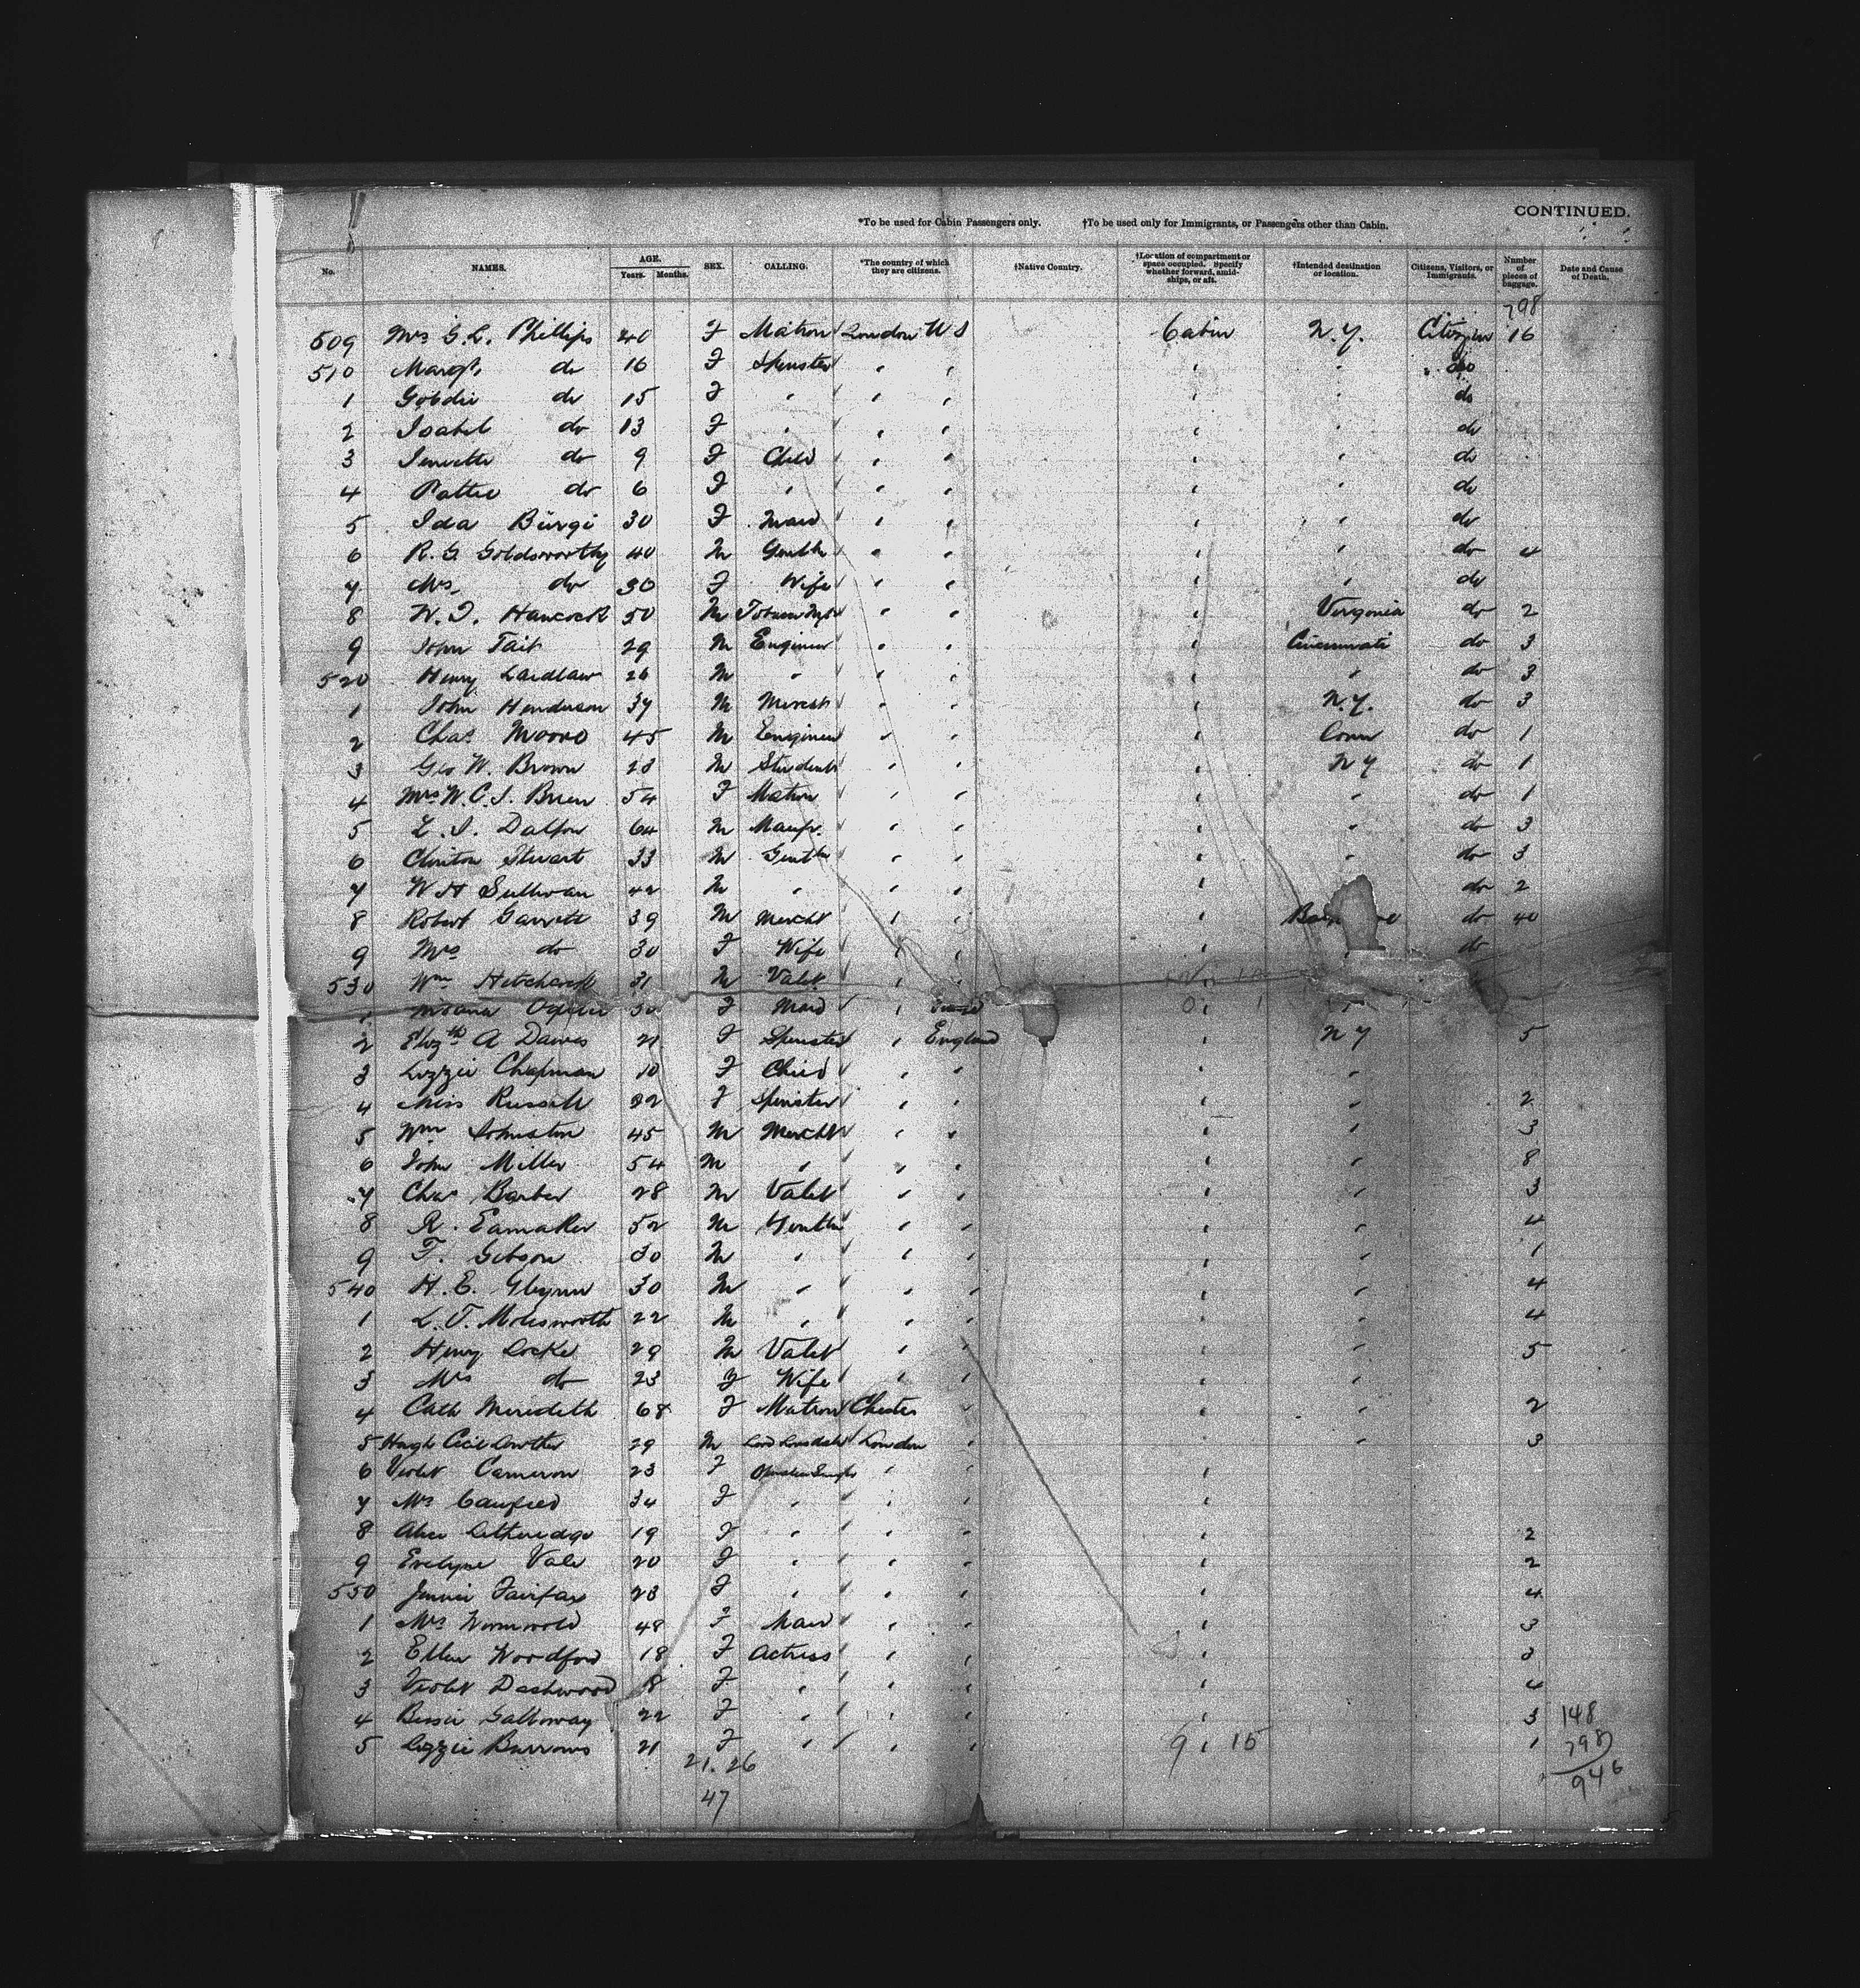 CONTINUED.
*To be used for Cabin Passengers only. †To be used only for Immigrants, or Passengers other than Cabin.
No. NAMES. AGE. Years. Months. SEX. CALLING. *The country of which they are citizens. †Native Country. †Location of compartment or space occupied. Specify whether forward, amidships, or aft. †Intended destination or location. Citizens, Visitors, or Immigrants. Number of pieces of baggage. Date and Cause of Death.
798
509 Mrs G.L. Phillips 40 F Matron London U S Cabin N.Y. Citizen 16
510 Margt do 16 F Spinster " " " " do
1 do 15 F " " " " " do
2 Isabel do 13 F " " " " " do
3 do 9 F Child " " " " do
4 Pattie do 6 F " " " " " do
5 Ida Bürgi 30 F Maid " " " " do
6 R.G. Goldsworthy 40 M Gentln " " " " do 4
7 Mrs do 30 F Wife " " " " do
8 W.T. Hancock 50 M " " " Virgonia do 2
9 John Tait 29 M Engineer " " " Cincinnati do 3
520 Henry Laidlaw 26 M " " " " " do 3
1 John Henderson 37 M Mercht " " " N.Y. do 3
2 Chas Moore 45 M Engineer " " " Conn do 1
3 Geo W. Brown 23 M Student " " " N Y do 1
4 Mrs W.C.J. Brien 54 F Matron " " " " do 1
5 L.S. 64 M Manfr. " " " " do 3
6 Clinton Stewart 33 M Gentln " " " " do 3
7 W H Sullivan 42 M " " " " " do 2
8 Robert Garrett 39 M Mercht " " " do 40
9 Mrs do 30 F Wife " " " " do
530 Wm 31 M Valet " " "
1 30 F Maid " " "
2 Elizth A Dawes 21 F Spinster " England " N Y 5
3 Lizzie Chapman 10 F Child " " " "
4 Miss Russell 22 F Spinster " " " " 2
5 Wm Johnston 45 M Mercht " " " " 3
6 John Miller 54 M " " " " " 8
7 Chas Barber 28 M Valet " " " " 3
8 R. Eamaker 52 M Gentln " " " " 4
9 F. Gibson 30 M " " " " " 1
540 H.E. Glynn 30 M " " " " " 4
1 L.T. Molesworth 22 M " " " " " 4
2 Henry Locke 29 M Valet " " " " 5
3 Mrs do 23 F Wife " " " "
4 Cath Merideth 68 F Matron Chester " " " 2
5 Hugh Cecil Lowther 29 M Lord Lonsdale London " " " 3
6 Violet Cameron 23 F " " "
7 Mrs 34 F " " " "
8 Alice Letheredge 19 F " " " " 2
9 Evelyne Vale 20 F " " " " 2
550 Jennie Fairfax 23 F " " " " 4
1 Mrs Wormwold 48 F Maid " " " 3
2 Ellen Woodford 18 F Actress " " " 3
3 Violet Dashwood 18 F " " " " 4
4 Bessie Galloway 22 F " " " " 3
5 Lizzie Burrows 21 F " " " " 1
9 15
148
798
946
21. 26
47